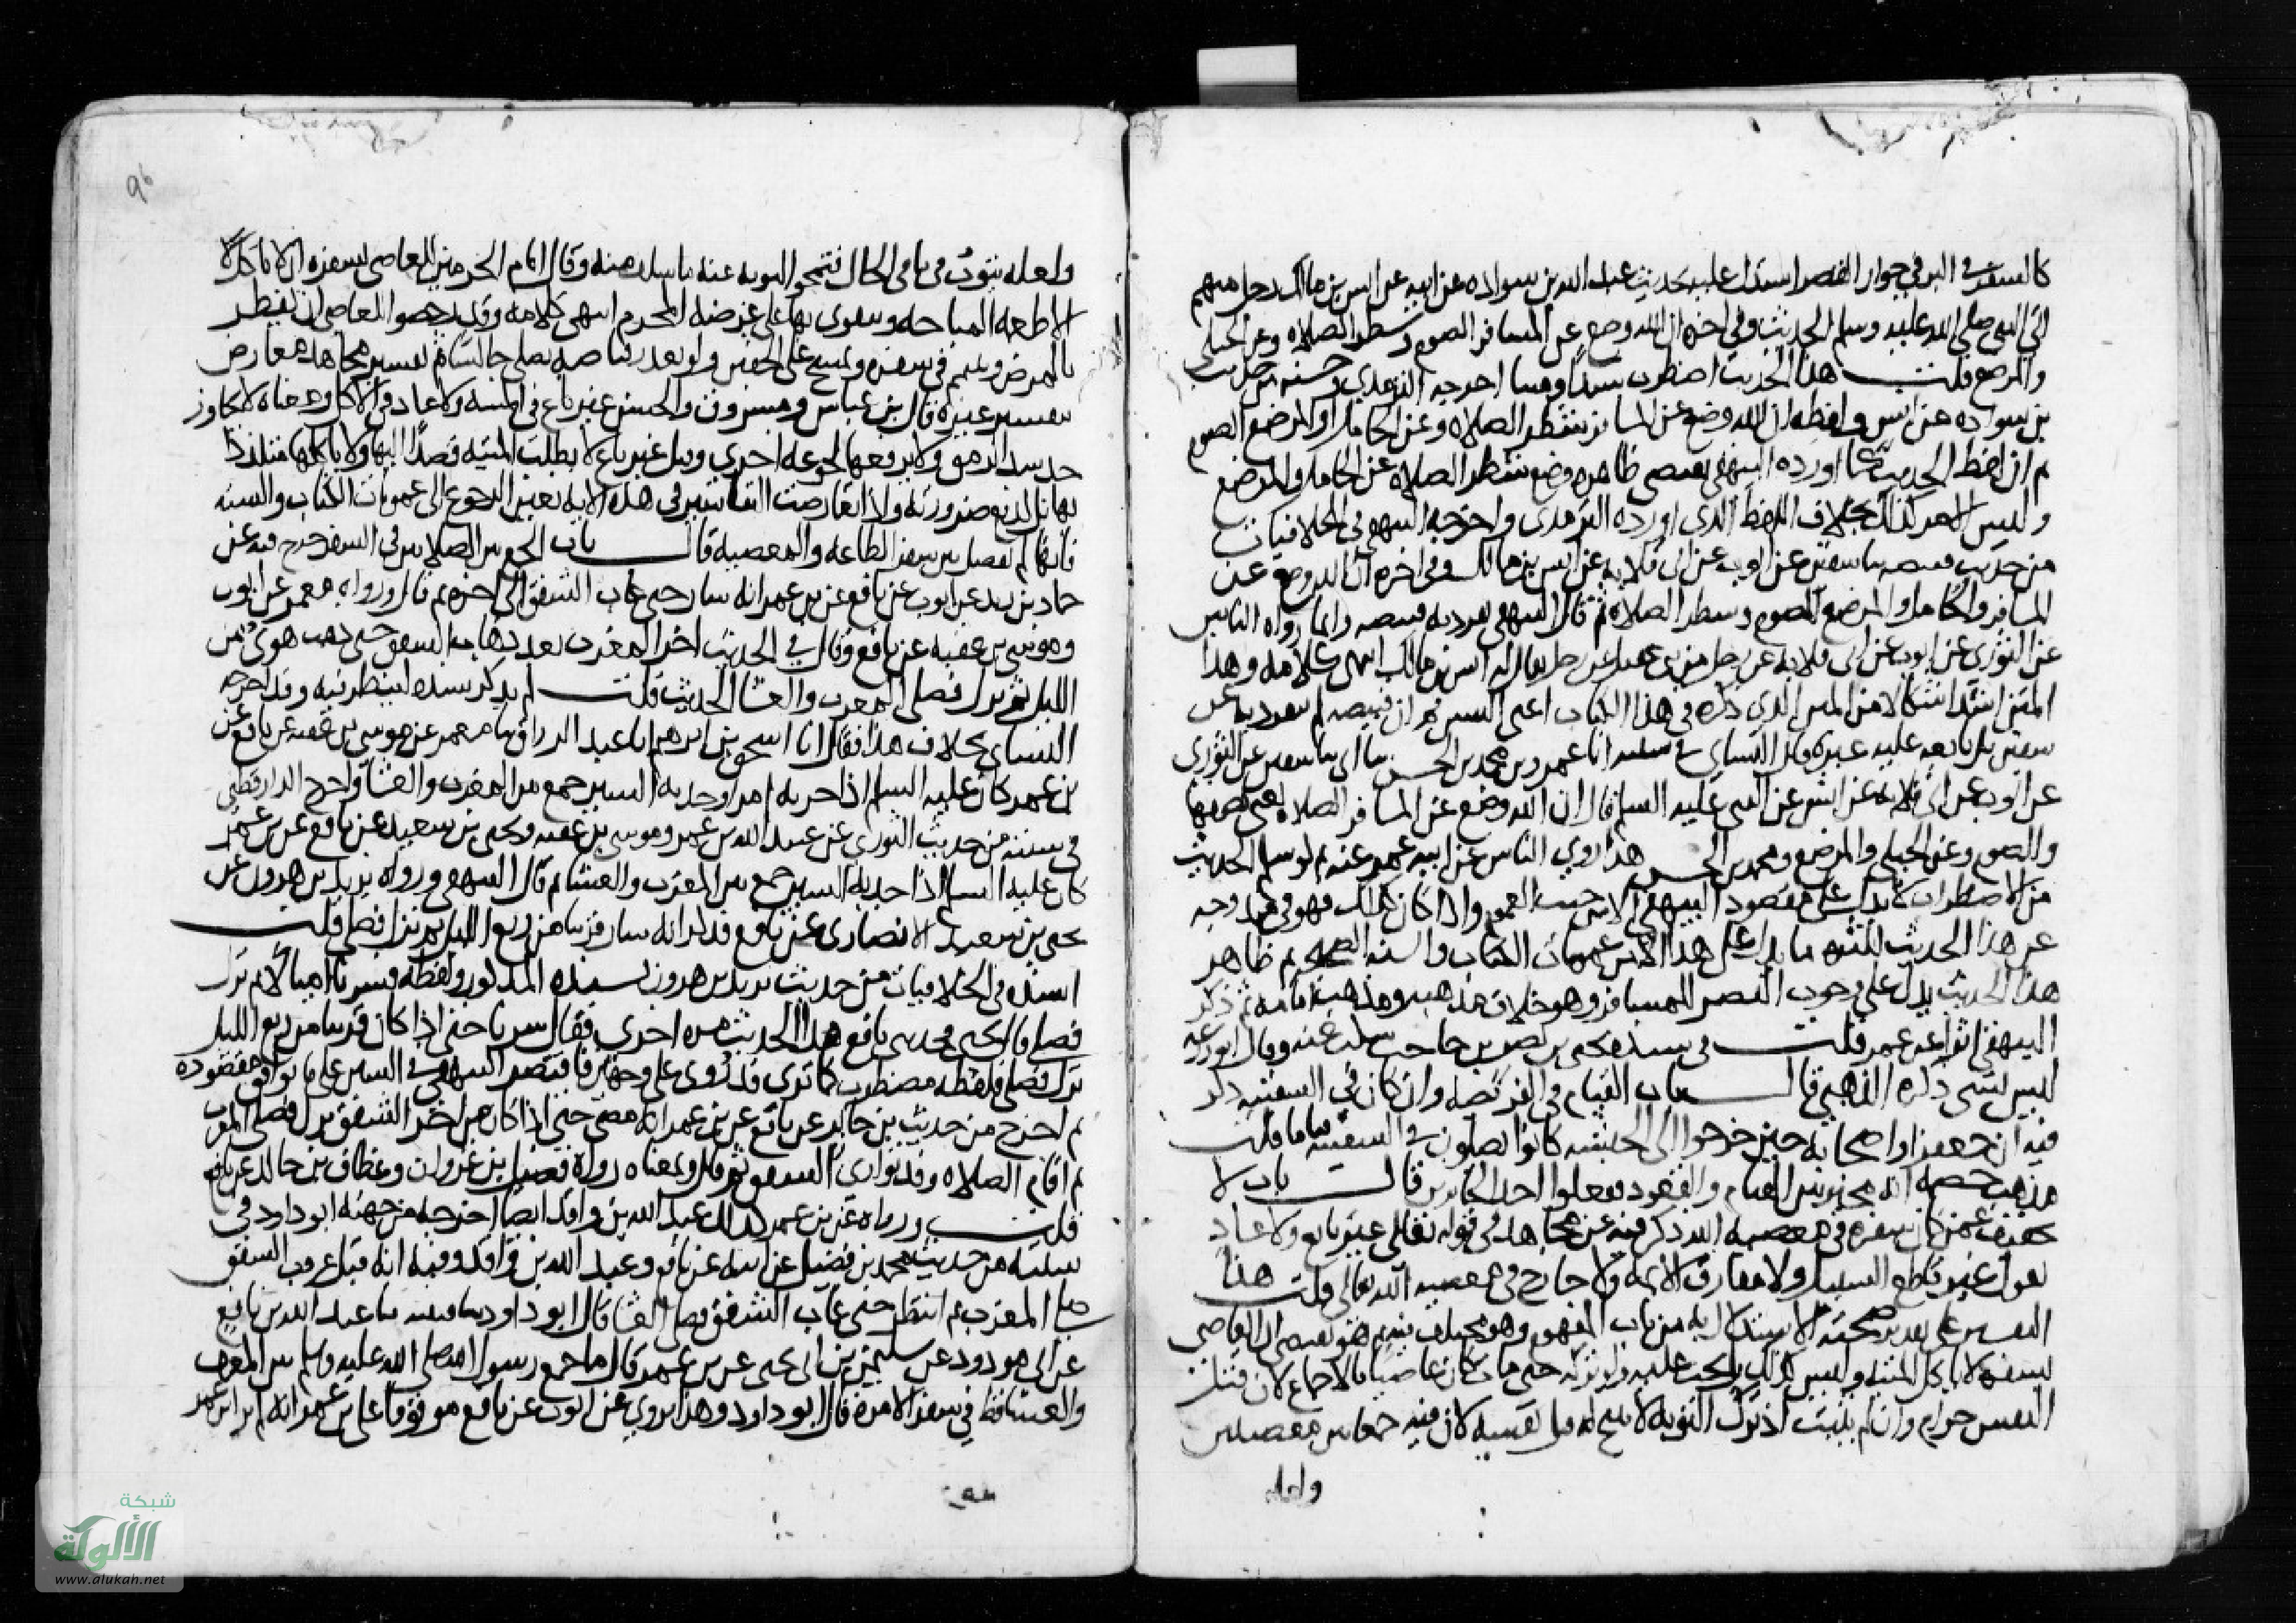 كالسفر في البر في جواز القصر استدل عليه بحديث عبد الله بن سوادة عن ابيه عن انس بن مالك رجل منهم
اتى النبي صلى الله عليه وسلم الحديث وفي اخره ان الله وضع عن المسافر الصوم وشطر الصلاة وعن الحبلى
والمرضع قلت هذا الحديث اضطرب سندا ومتنا اخرجه الترمذي وحسنه من حديث
بن سوادة عن انس ولفظه ان الله وضع عن المسافر شطر الصلاة وعن الحامل او المرضع الصوم
ثم ان لفظ الحديث كما اورده البيهقي يقتضي ظاهره وضع شطر الصلاة عن الحامل والمرضع
وليس الامر كذلك بخلاف اللفظ الذي اورده الترمذي واخرجه البيهقي في الخلافيات
من حديث قبيصة ثنا سفين عن ايوب عن ابي قلابة عن انس بن مالك وفي اخره ان الله وضع عن
المسافر والحامل والمرضع الصوم وشطر الصلاة ثم قال البيهقي تفرد به قبيصة وانما رواه الناس
عن الثوري عن ايوب عن ابي قلابة عن رجل من بني عقيل عن رجل يقال له انس بن مالك انتهى كلامه وهذا
المتن اشد اشكالا من المتن الذي ذكره في هذا الكتاب اعني السنن ثم ان قبيصة لم ينفرد به عن
سفين بل تابعه عليه غيره قال النسائي في سننه انا عمرو بن محمد بن الحسن ثنا ابي ثنا سفين عن الثوري
عن ايوب عن ابي قلابة عن انس عن النبي عليه السلم قال ان الله وضع عن المسافر الصلاة يعني نصفها
والصوم وعن الحبلى والمرضع ومحمد بن الحسن هذا روى الناس عن ابيه عمرو عنه ثم لو سلم الحديث
من الاضطراب لا يدل على مقصود البيهقي الا من حيث العموم واذا كان كذلك فهو في غير وجه
عن هذا الحديث لثبوت ما يدل على هذا الامر عمومات الكتاب والسنة الصحيحة ثم ظاهر
هذا الحديث يدل على وجوب القصر للمسافر وهو خلاف مذهبه ومذهب امامه ثم ذكر
البيهقي اثرا عن عمر قلت في سنده يحيى بن نصر بن حاجب سكت عنه وقال ابو زرعة
ليس بشي ذكره الذهبي قال باب القيام في الفريضة وان كان في السفينة ذكر
فيه ان جعفرا واصحابه حين خرجوا الى الحبشة كانوا يصلون في السفينة قياما قلت
مذهب خصمه انه مخير بين القيام والقعود ففعلوا احد الجائزين قال باب لا
تخفيف عمن كان سفره في معصية الله ذكر فيه عن مجاهد في قوله تعالى غير باغ ولا عاد
يقول غير قاطع السبيل ولا مفارق الائمة ولا خارج في معصية الله تعالى قلت هذا
التفسير على تقدير صحته الاستدلال به من باب المفهوم وهو مختلف فيه ثم هو يقتضي ان العاصي
بسفره لا ياكل الميتة وليس كذلك بل يجب عليه ولو تركه حتى مات كان عاصيا بالاجماع لان قتل
النفس حرام وان لم يتب اذ ترك التوبة لا يبيح له قتل نفسه لان فيه جمعا بين معصيتين
ولعله
ولعله يتوب في باقي الحال فتمحو التوبة عنه ما سلف منه وقال امام الحرمين العاصي بسفره له ان ياكل
الاطعمة المباحة ويتقوى بها على غرضه المحرم انتهى كلامه وقد رخصوا للعاصي ان يفطر
بالمرض ويتيمم في سفره ويمسح على الخفين ولو بعد رخاصه يصلي جالسا ثم تفسير مجاهد معارض
بتفسير غيره قال بن عباس ومسروق والحسن غير باغ في الميتة ولا عاد في الاكل ومعناه لا يجاوز
حد سد الرمق ولا يرفعها لجوعة اخرى وقيل غير باغ لا يطلب الميتة قصدا اليها ولا ياكلها متلذذا
بها بل لدفع ضرورته واذا تعارضت التفاسير في هذه الاية تعين الرجوع الى عمومات الكتاب والسنة
فانها لم تفصل بين سفر الطاعة والمعصية قال باب الجمع بين الصلاتين في السفر خرج فيه عن
حماد بن زيد عن ايوب عن نافع عن بن عمر انه سار حتى غاب الشفق الى اخره ثم قال ورواه معمر عن ايوب
وموسى بن عقبة عن نافع وقال في الحديث اخر المغرب بعد ذهاب الشفق حتى ذهب هوي من
الليل ثم نزل فصلى المغرب والعشا الحديث قلت لم يذكر سنده لينظر فيه وقد اخرجه
النسائي بخلاف هذا فقال انا اسحق بن ابرهيم انا عبد الرزاق ثنا معمر عن موسى بن عقبة عن نافع عن
بن عمر كان عليه السلم اذا حزبه امر او جد به السير جمع بين المغرب والعشا واخرج الدارقطني
في سننه من حديث الثوري عن عبيد الله بن عمر وموسى بن عقبة ويحيى بن سعيد عن نافع عن بن عمر
كان عليه السلم اذا جد به السير جمع بين المغرب والعشا ثم قال البيهقي ورواه يزيد بن هرون عن
يحيى بن سعيد الانصاري عن نافع فذكر انه سار قريبا من ربع الليل ثم نزل فصلى قلت
اسنده في الخلافيات من حديث يزيد بن هرون بسنده المذكور ولفظه فسرنا اميالا ثم نزل
فصلى قال يحيى فحدثني نافع هذا الحديث مرة اخرى فقال سرنا حتى اذا كان قريبا من ربع الليل
نزل فصلى فلفظه مضطرب كما ترى قد روى على وجهين فاقتصر البيهقي في السنن على ما يوافق مقصوده
ثم اخرج من حديث بن جابر عن نافع عن بن عمر انه مضى حتى اذا كان من اخر الشفق نزل فصلى المغرب
ثم اقام الصلاة وقد توارى الشفق ثم قال وبمعناه رواه فضيل بن غزوان وعطاف بن خالد عن نافع
قلت ورواه عن بن عمر كذلك عبد الله بن واقد ايضا اخرجه من جهته ابو داود في
سننه من حديث محمد بن فضيل عن ابيه عن نافع وعبد الله بن واقد وفيه انه قبل غروب الشفق
صلى المغرب ثم انتظر حتى غاب الشفق فصلى العشا قال ابو داود ثنا قتيبة ثنا عبد الله بن نافع
عن ابي مودود عن سليمن بن ابي يحيى عن بن عمر قال ما جمع رسول الله صلى الله عليه وسلم بين المغرب
والعشا قط في سفر الا مرة قال ابو داود وهذا يروى عن ايوب عن نافع موقوفا على بن عمر انه لم ير ابن عمر
شبكة
الألوكة
www.alukah.net